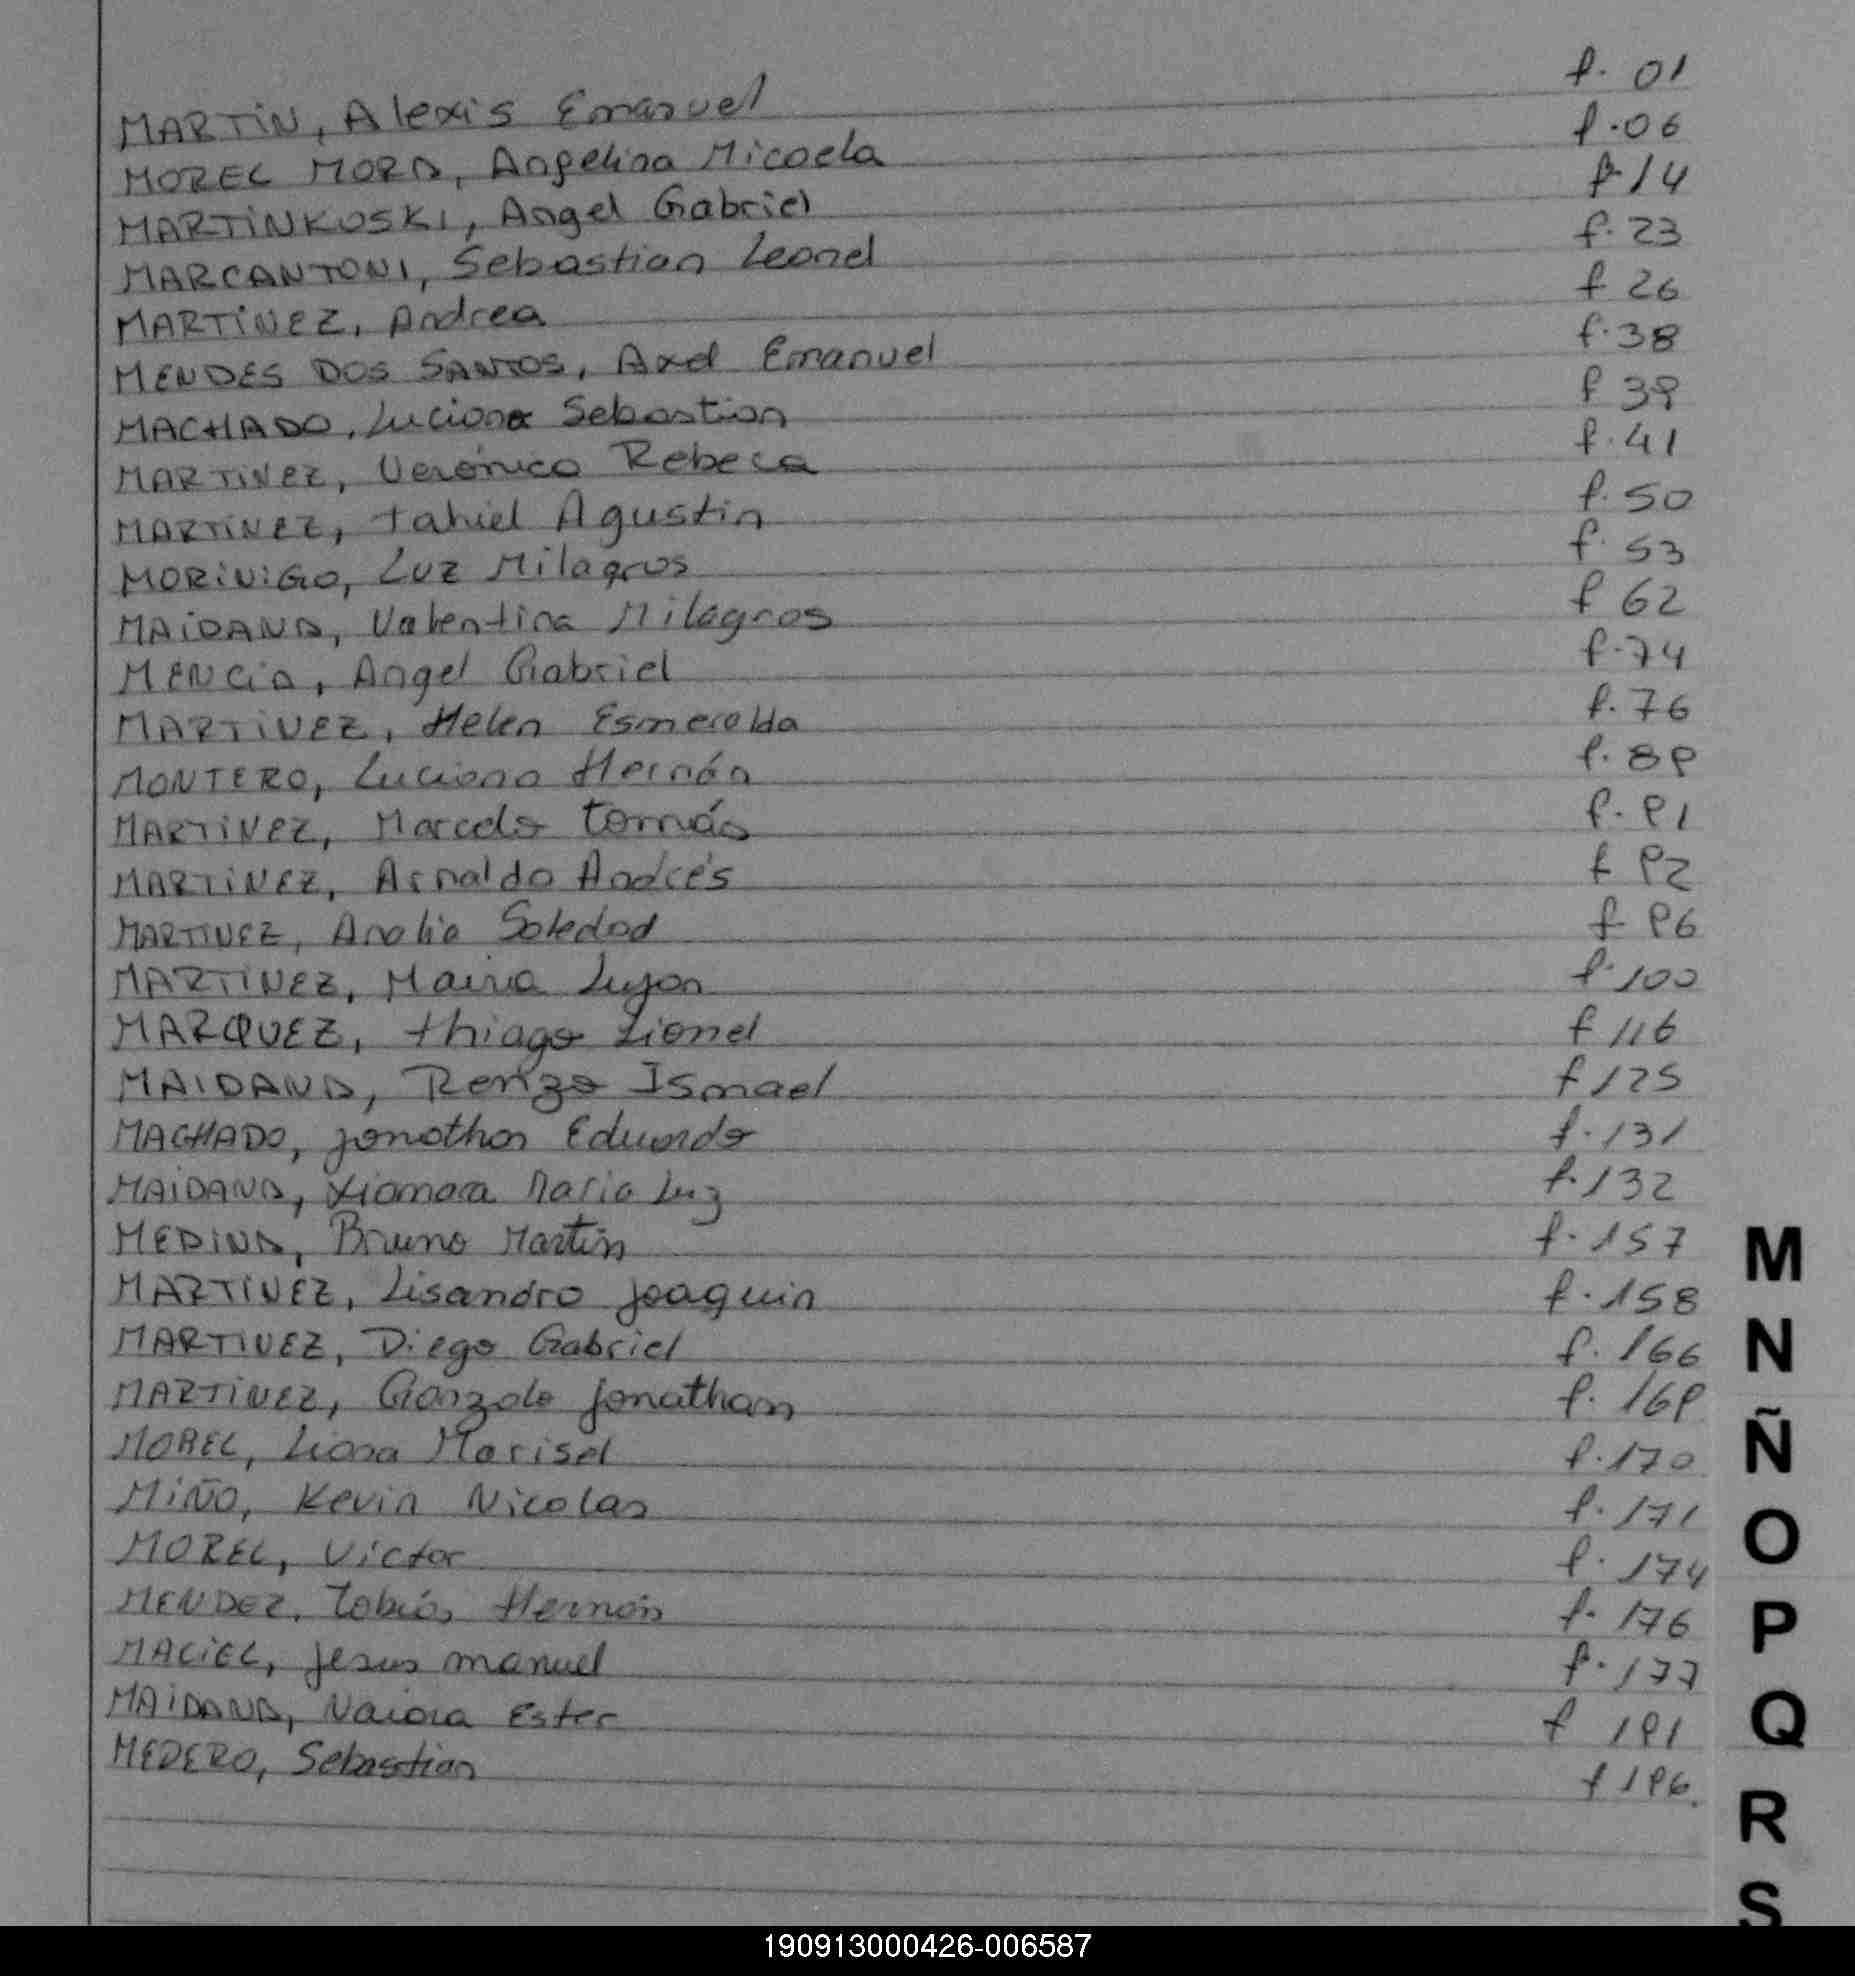 MARTiN, Alexis Emanuel f. 01
MOREL MORA, Angelina Micaela f. 06
MARTiNKOSKI, Angel Gabriel f. 14
MARCANTONI, Sebastian Leonel f. 23
MARTiNEZ, Andrea f 26
MENDES DOS SANTOS, Axel Emanuel f. 38
MACHADO, Luciano Sebastian f 39
MARTiNEZ, Verónica Rebeca f. 41
MARTiNEZ, tahiel Agustin f. 50
MORiNiGO, Luz Milagros f. 53
MAiDANA, Valentina Milagros f 62
MENCiA, Angel Gabriel f. 74
MARTiNEZ, Helen Esmeralda f. 76
MONTERO, Luciano Hernán f. 89
MARTiNEZ, Marcelo tomás f. 91
MARTiNEZ, Arnaldo Andrés f 92
MARTINEZ, Analia Soledad f 96
MARTiNEZ, Maira Lujan f. 100
MARQUEZ, thiago Lionel f 116
MAIDANA, Renzo Ismael f 125
MACHADO, jonathan Eduardo f. 131
MAiDANA, Xiomara Maria Luz f. 132
MEDiNA, Bruno Martin f. 157
MARTINEZ, Lisandro joaquin f. 158
MARTINEZ, Diego Gabriel f. 166
MARTiNEZ, Gonzalo jonathan f. 169
MOREL, Liosa Marisel f. 170
MiÑO, Kevin Nicolas f. 171
MOREL, Victor f. 174
MENDEZ, Tobías Hernán f. 176
MACiEL, jesus manuel f. 177
MAiDANA, Naiara Ester f 191
MEDERO, Sebastian f 196.
M
N
Ñ
O
P
Q
R
S
190913000426-006587